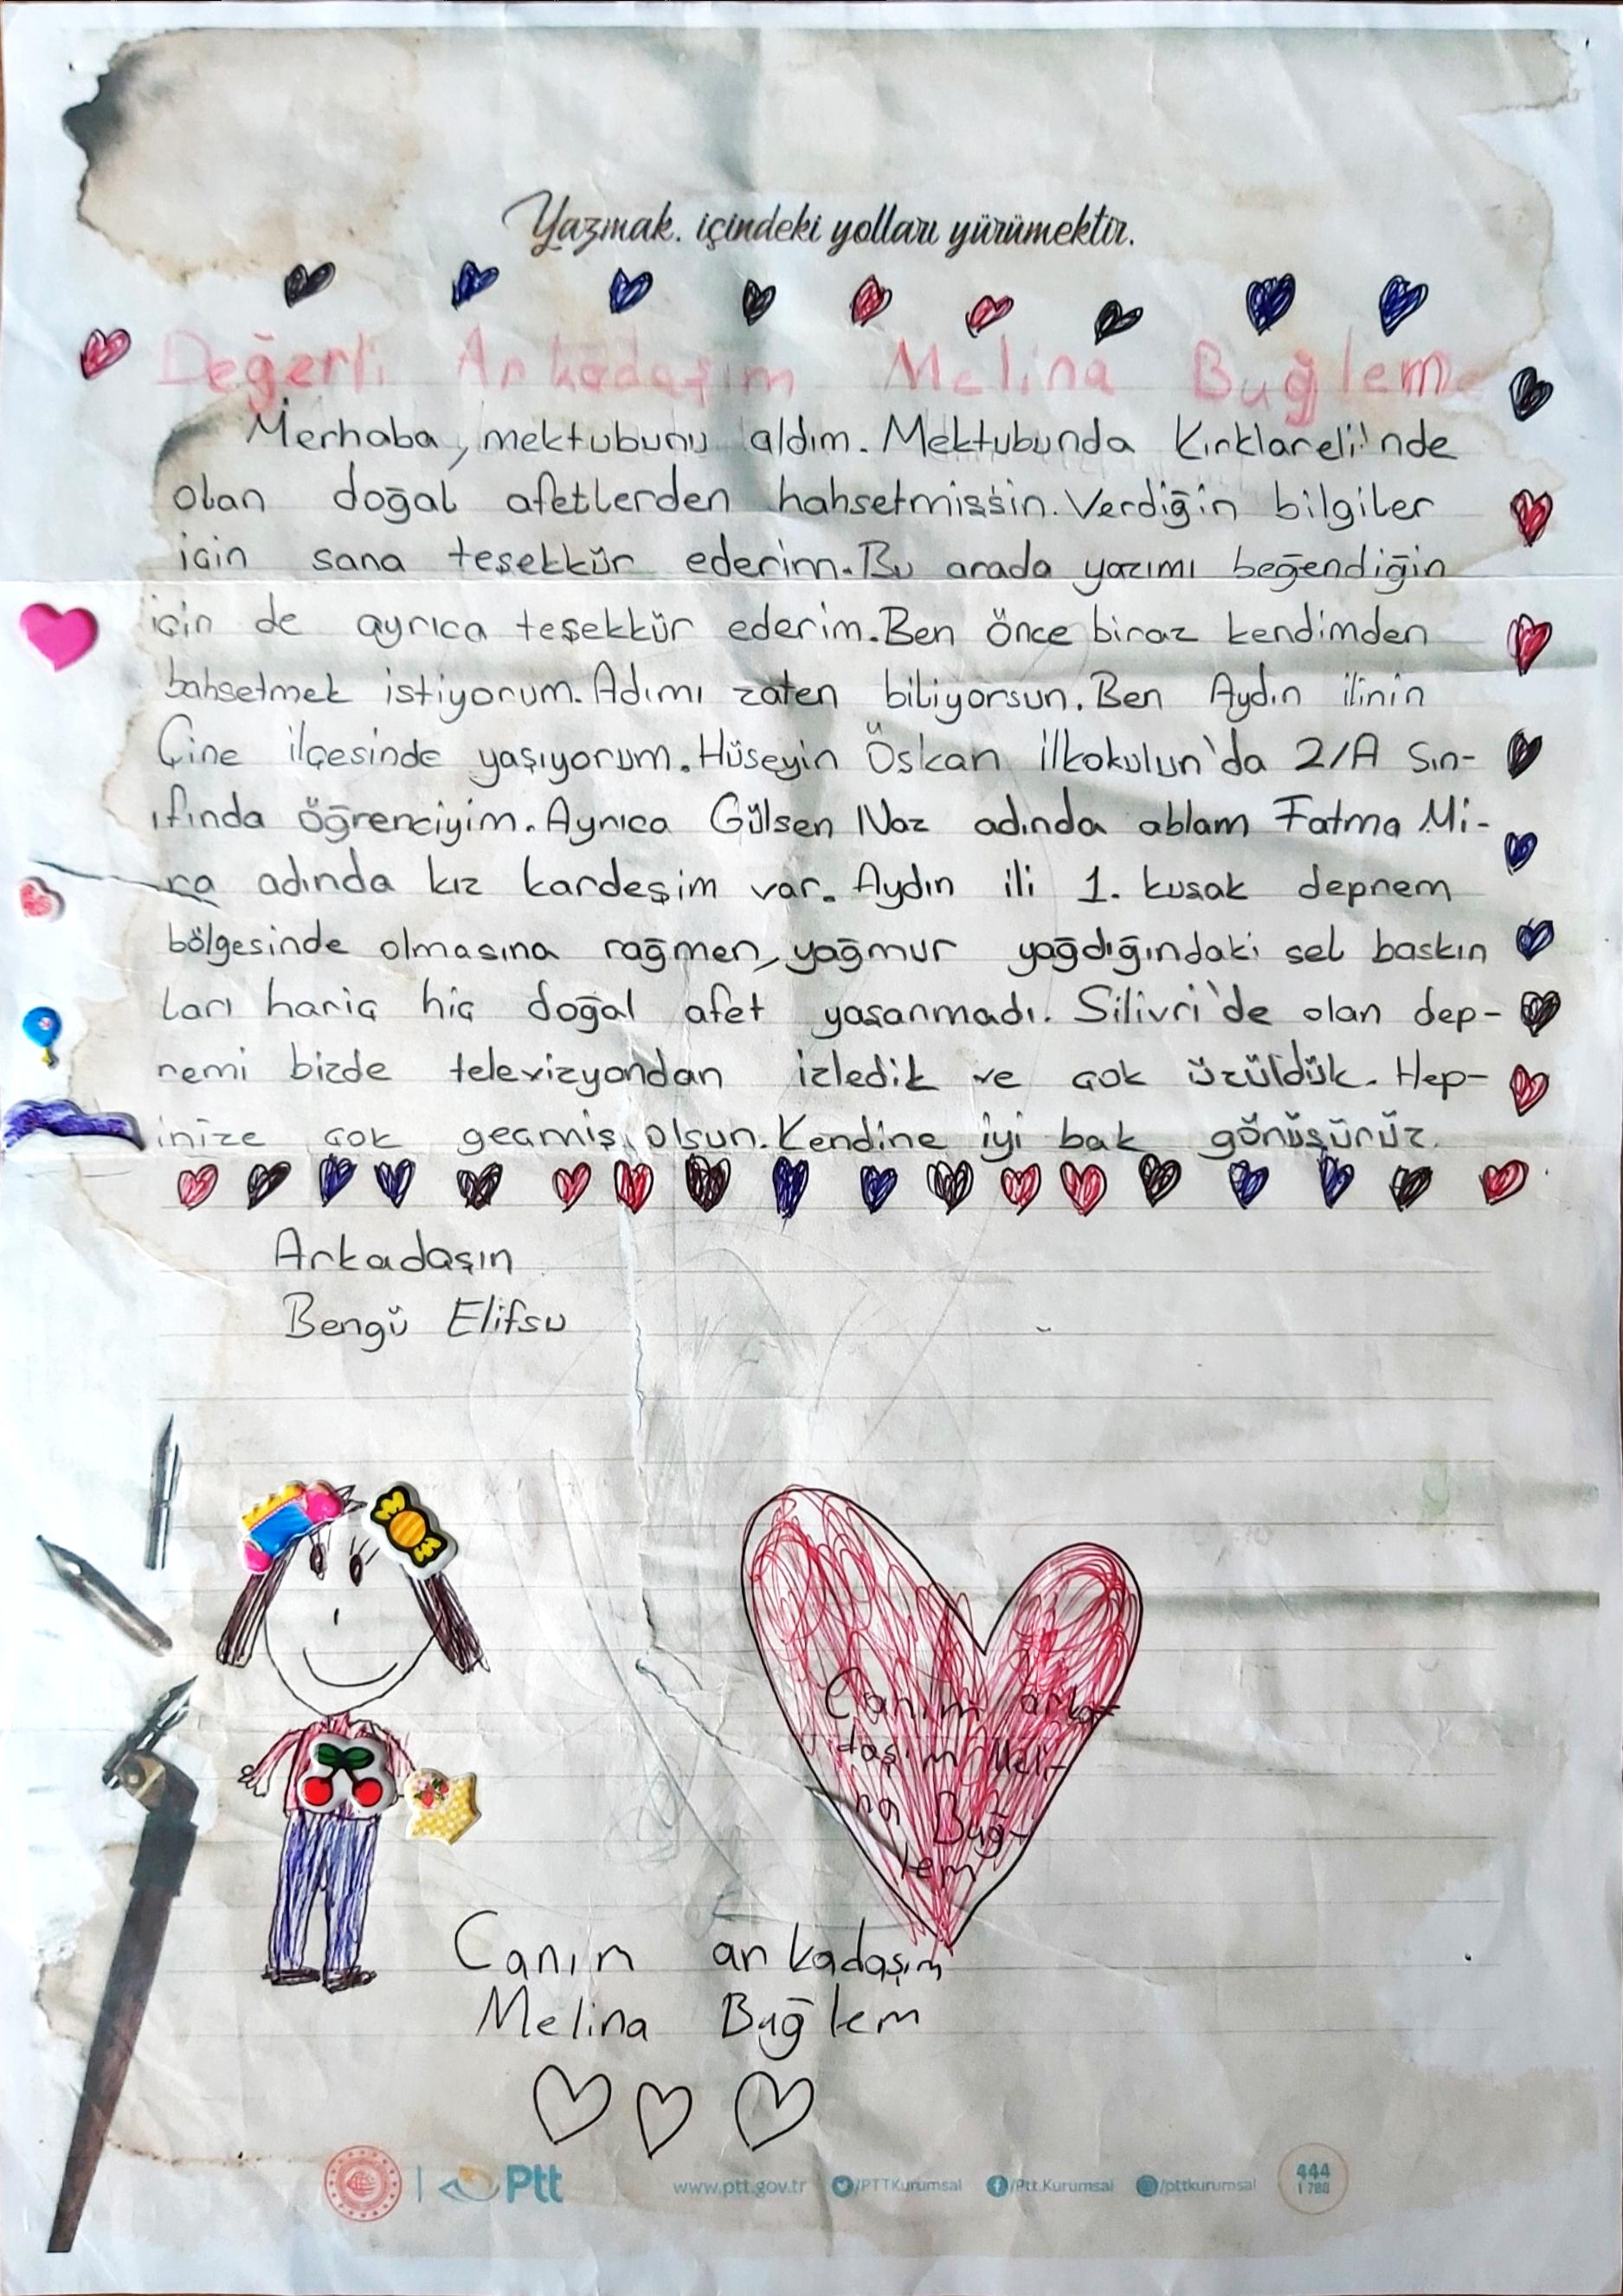 Yazmak. içindeki yolları yürümektir.
Değerli Arkadaşım Melina Buğlem
Merhaba, mektubunu aldım. Mektubunda Kırklareli'nde
olan doğal afetlerden hahsetmişsin. Verdiğin bilgiler
için sana teşekkür ederim. Bu arada yazımı beğendiğin
için de ayrıca teşekkür ederim. Ben önce biraz kendimden
bahsetmek istiyorum. Adımı zaten biliyorsun. Ben Aydın ilinin
Çine ilçesinde yaşıyorum. Hüseyin Öskan ilkokulun'da 2/A Sın-
ıfında öğrenciyim. Ayrıca Gülsen Naz adında ablam Fatma Mi-
ra adında kız kardeşim var. Aydın ili 1. kusak deprem
bölgesinde olmasına rağmen, yağmur yağdığındaki sel baskın
ları hariç hiç doğal afet yaşanmadı. Silivri'de olan dep-
remi bizde televizyondan izledik ve çok üzüldük. Hep-
inize çok geçmiş olsun. Kendine iyi bak görüşürüz.
Arkadaşın
Bengü Elifsu
Canım arka-
daşım Meli-
na Buğ-
lem
Canım arkadaşım
Melina Buğlem
Ptt www.ptt.gov.tr /PTTKurumsal /Ptt.Kurumsal /pttkurumsal 444
1 788